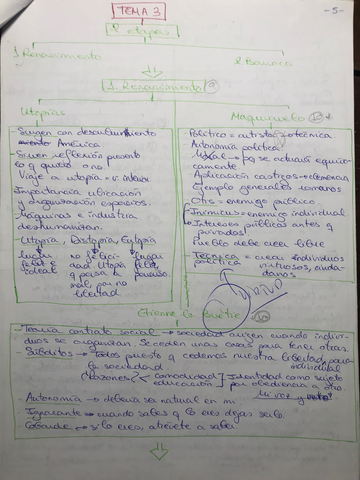 TEMA 3
-5-
2 etapas
1. Renacimiento
2. Barroco
1. Renacimiento
Utopías
- Surgen con descubrimiento
América
- Sirven reflexión presente
lo q quiero o no.
- Viaje a utopía =
- Importancia ubicación
y organización espacios.
- Máquinas e industria
deshumanizan.
- Utopía, Distopía, Eutopía
lugar no felici- lugar
ideal dad feliz,
paraíso
mal, por no
libertad
Maquiavelo
- Político = artista
- Autonomía política
- Moral → pq se actúan
camente
- Aplicación castigos → clemencia
- Ejemplo generales romanos
- Otro = enemigo público.
- Inimicus = enemigo individual
- Intereses públicos antes q
privados.
- Pueblo debe creer libre
- Técnica = crear individuos
política virtuosos, ciuda-
danos
Etienne la Boétie
- Teoría contrato social → sociedad surgen cuando indivi-
duos se organizan. Se ceden unas cosas para tener otras.
- Súbditos → Todos puesto q cedemos nuestra libertad
individual
la sociedad
¿Razones? comodidad Identidad como sujeto
educación por obediencia a otro
- Autonomía → debería ser natural en mi mi voz y
- Ignorante → cuando sabes q lo eres dejas serlo.
- Cobarde → si lo eres, atrévete a saber.